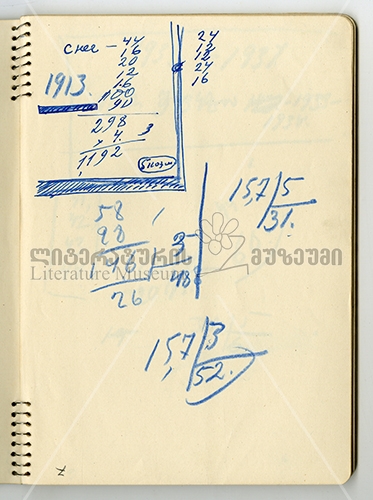 снег - 44
16
20
12
16
100
90
298
4. 3
1192
1913.
24
12
12
24
16
58
98
18
26
3
15,7 5
31.
ლიტერატურის მუზეუმი
Literature Museum
15,7 3
52.
7